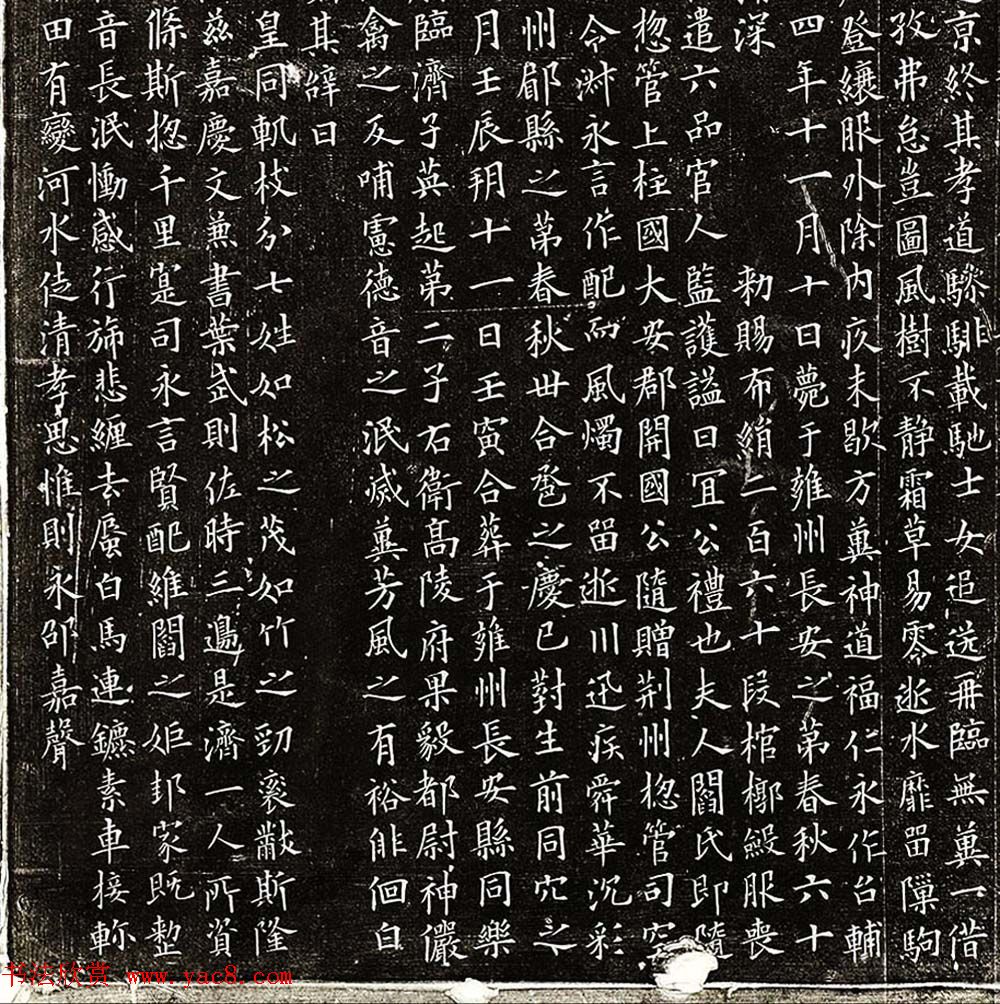 京終其孝道驂騑載馳士女追送再臨無冀一借
孜弗怠豈圖風樹不静霜草易零逝水靡留隟駒
登纕服外除内疚未歇方冀神道福仁永作台輔
四年十一月十日薨于雍州長安之第春秋六十
深 勑賜布絹二百六十段棺槨殹服喪
遣六品官人監護謚曰宜公禮也夫人閻氏即隨
揔管上柱國大安郡開國公隨贈荆州揔管司空
令淑永言作配而風燭不留逝川迅疾舜華沉彩
州郿縣之第春秋卌合卺之慶已對生前同穴之
月壬辰朔十一日壬寅合葬于雍州長安縣同樂
臨濟子英起第二子右衛高陵府果毅都尉神儼
禽之反哺憲德音之泯滅冀芳風之有裕俳佪白
其辝曰
皇同軌枝分七姓如松之茂如竹之勁衮黻斯隆
兹嘉慶文兼書葉武則佐時三邊是濟一人所資
條斯揔千里寔司永言賢配維閻之姬邦家既塾
音長泯慟感行斾悲纏去蜃白馬連鑣素車接軫
田有變河水徒清孝思惟則永邵嘉聲
书法欣赏 www.yac8.com